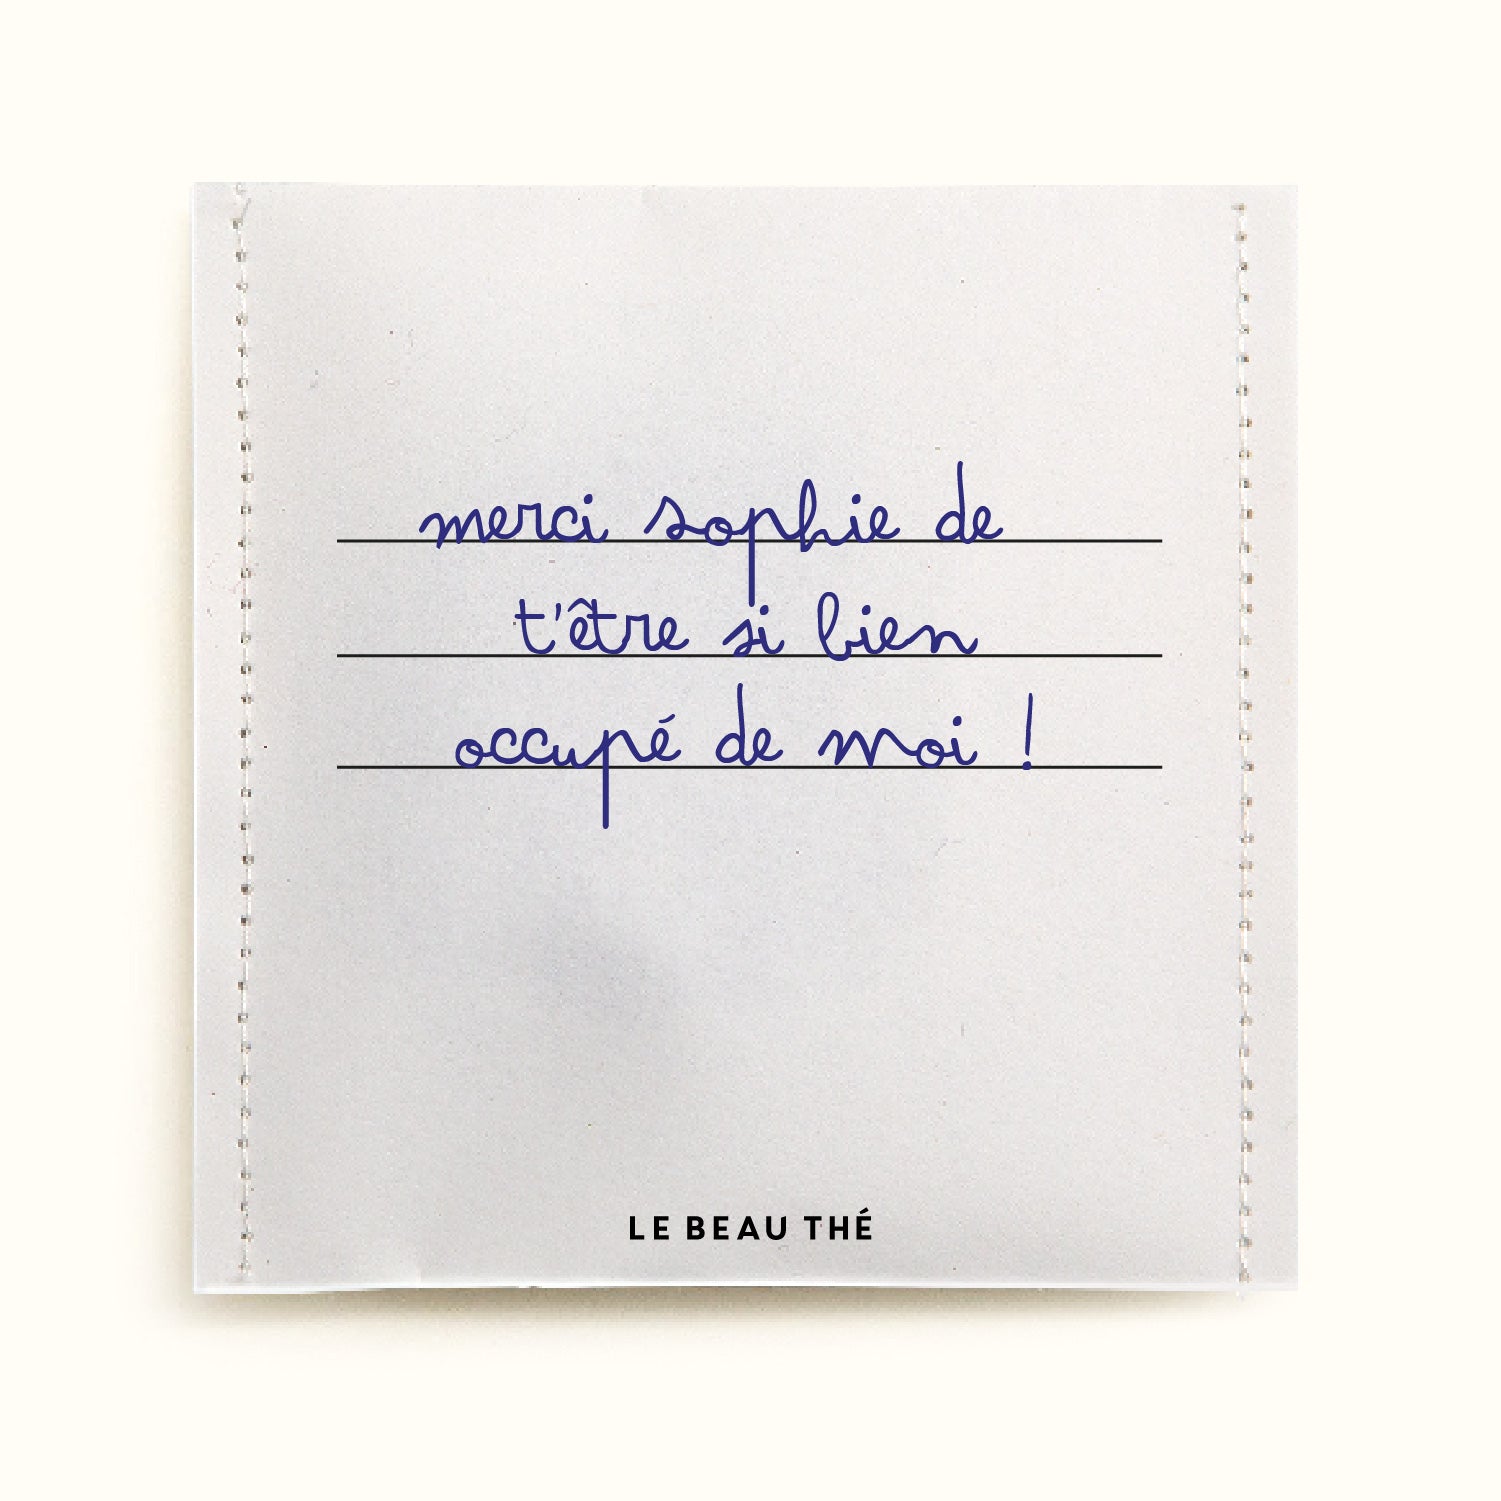 merci sophie de
t'être si bien
occupé de moi !
LE BEAU THÉ